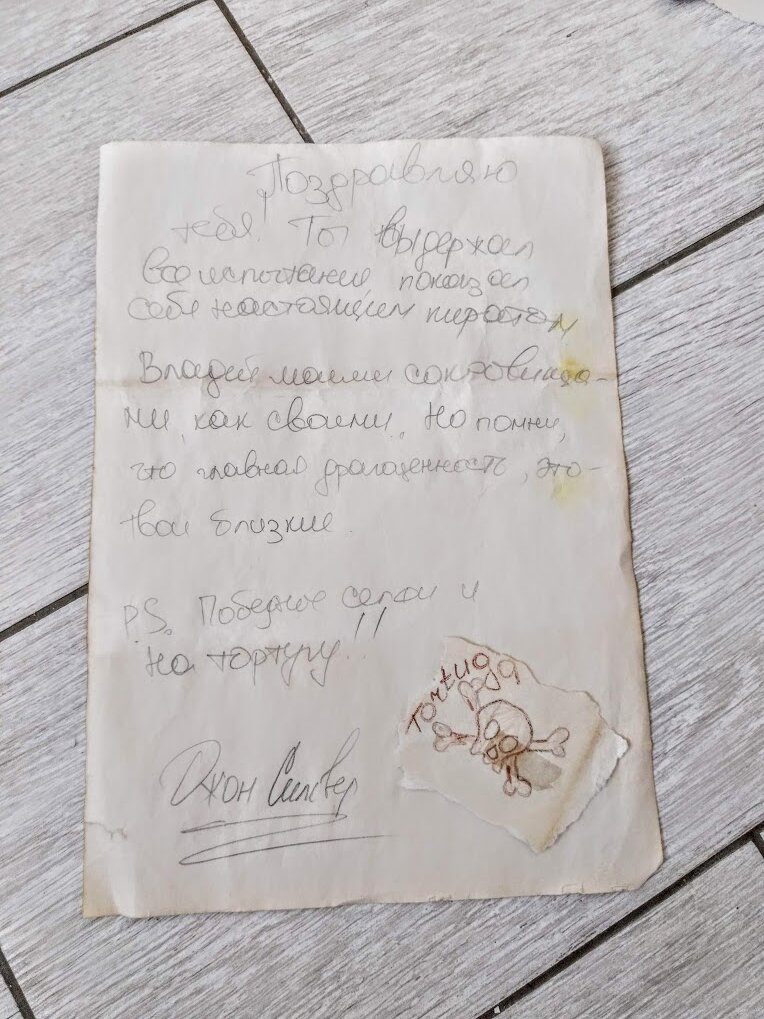 Поздравляю
тебя! Ты выдержал
все испытания, показал
себя настоящим пиратом
Владей моими сокровища-
ми, как своими. Но помни,
что главная драгоценность, это-
твои близкие.
P.S. Победное селфи и
на тортугу!!
Tortuga
Джон Сильвер